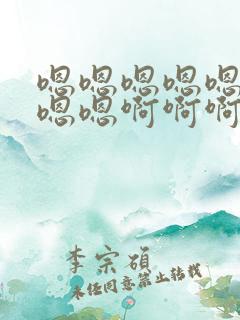 嗯嗯嗯嗯嗯
嗯嗯啊啊啊
李宗碩
未经同意禁止转载